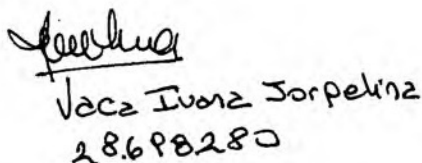 Vaca Ivana Jorpelina
28.698280